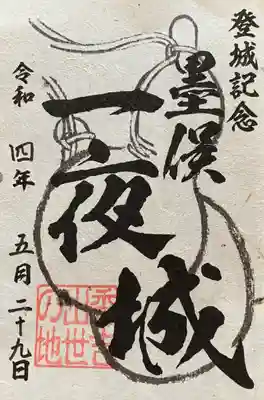 登城記念
墨俣
一夜城
秀吉
出世
の地
令和 四年 五月 二十九日